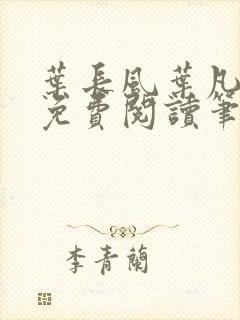 葉長風葉凡
免費閱讀筆
李青蘭